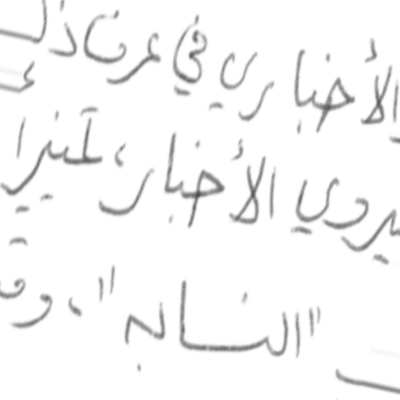 الأخباري في عرف ذلك
يروي الأخبار، تمييزا
"النسابه"، وق